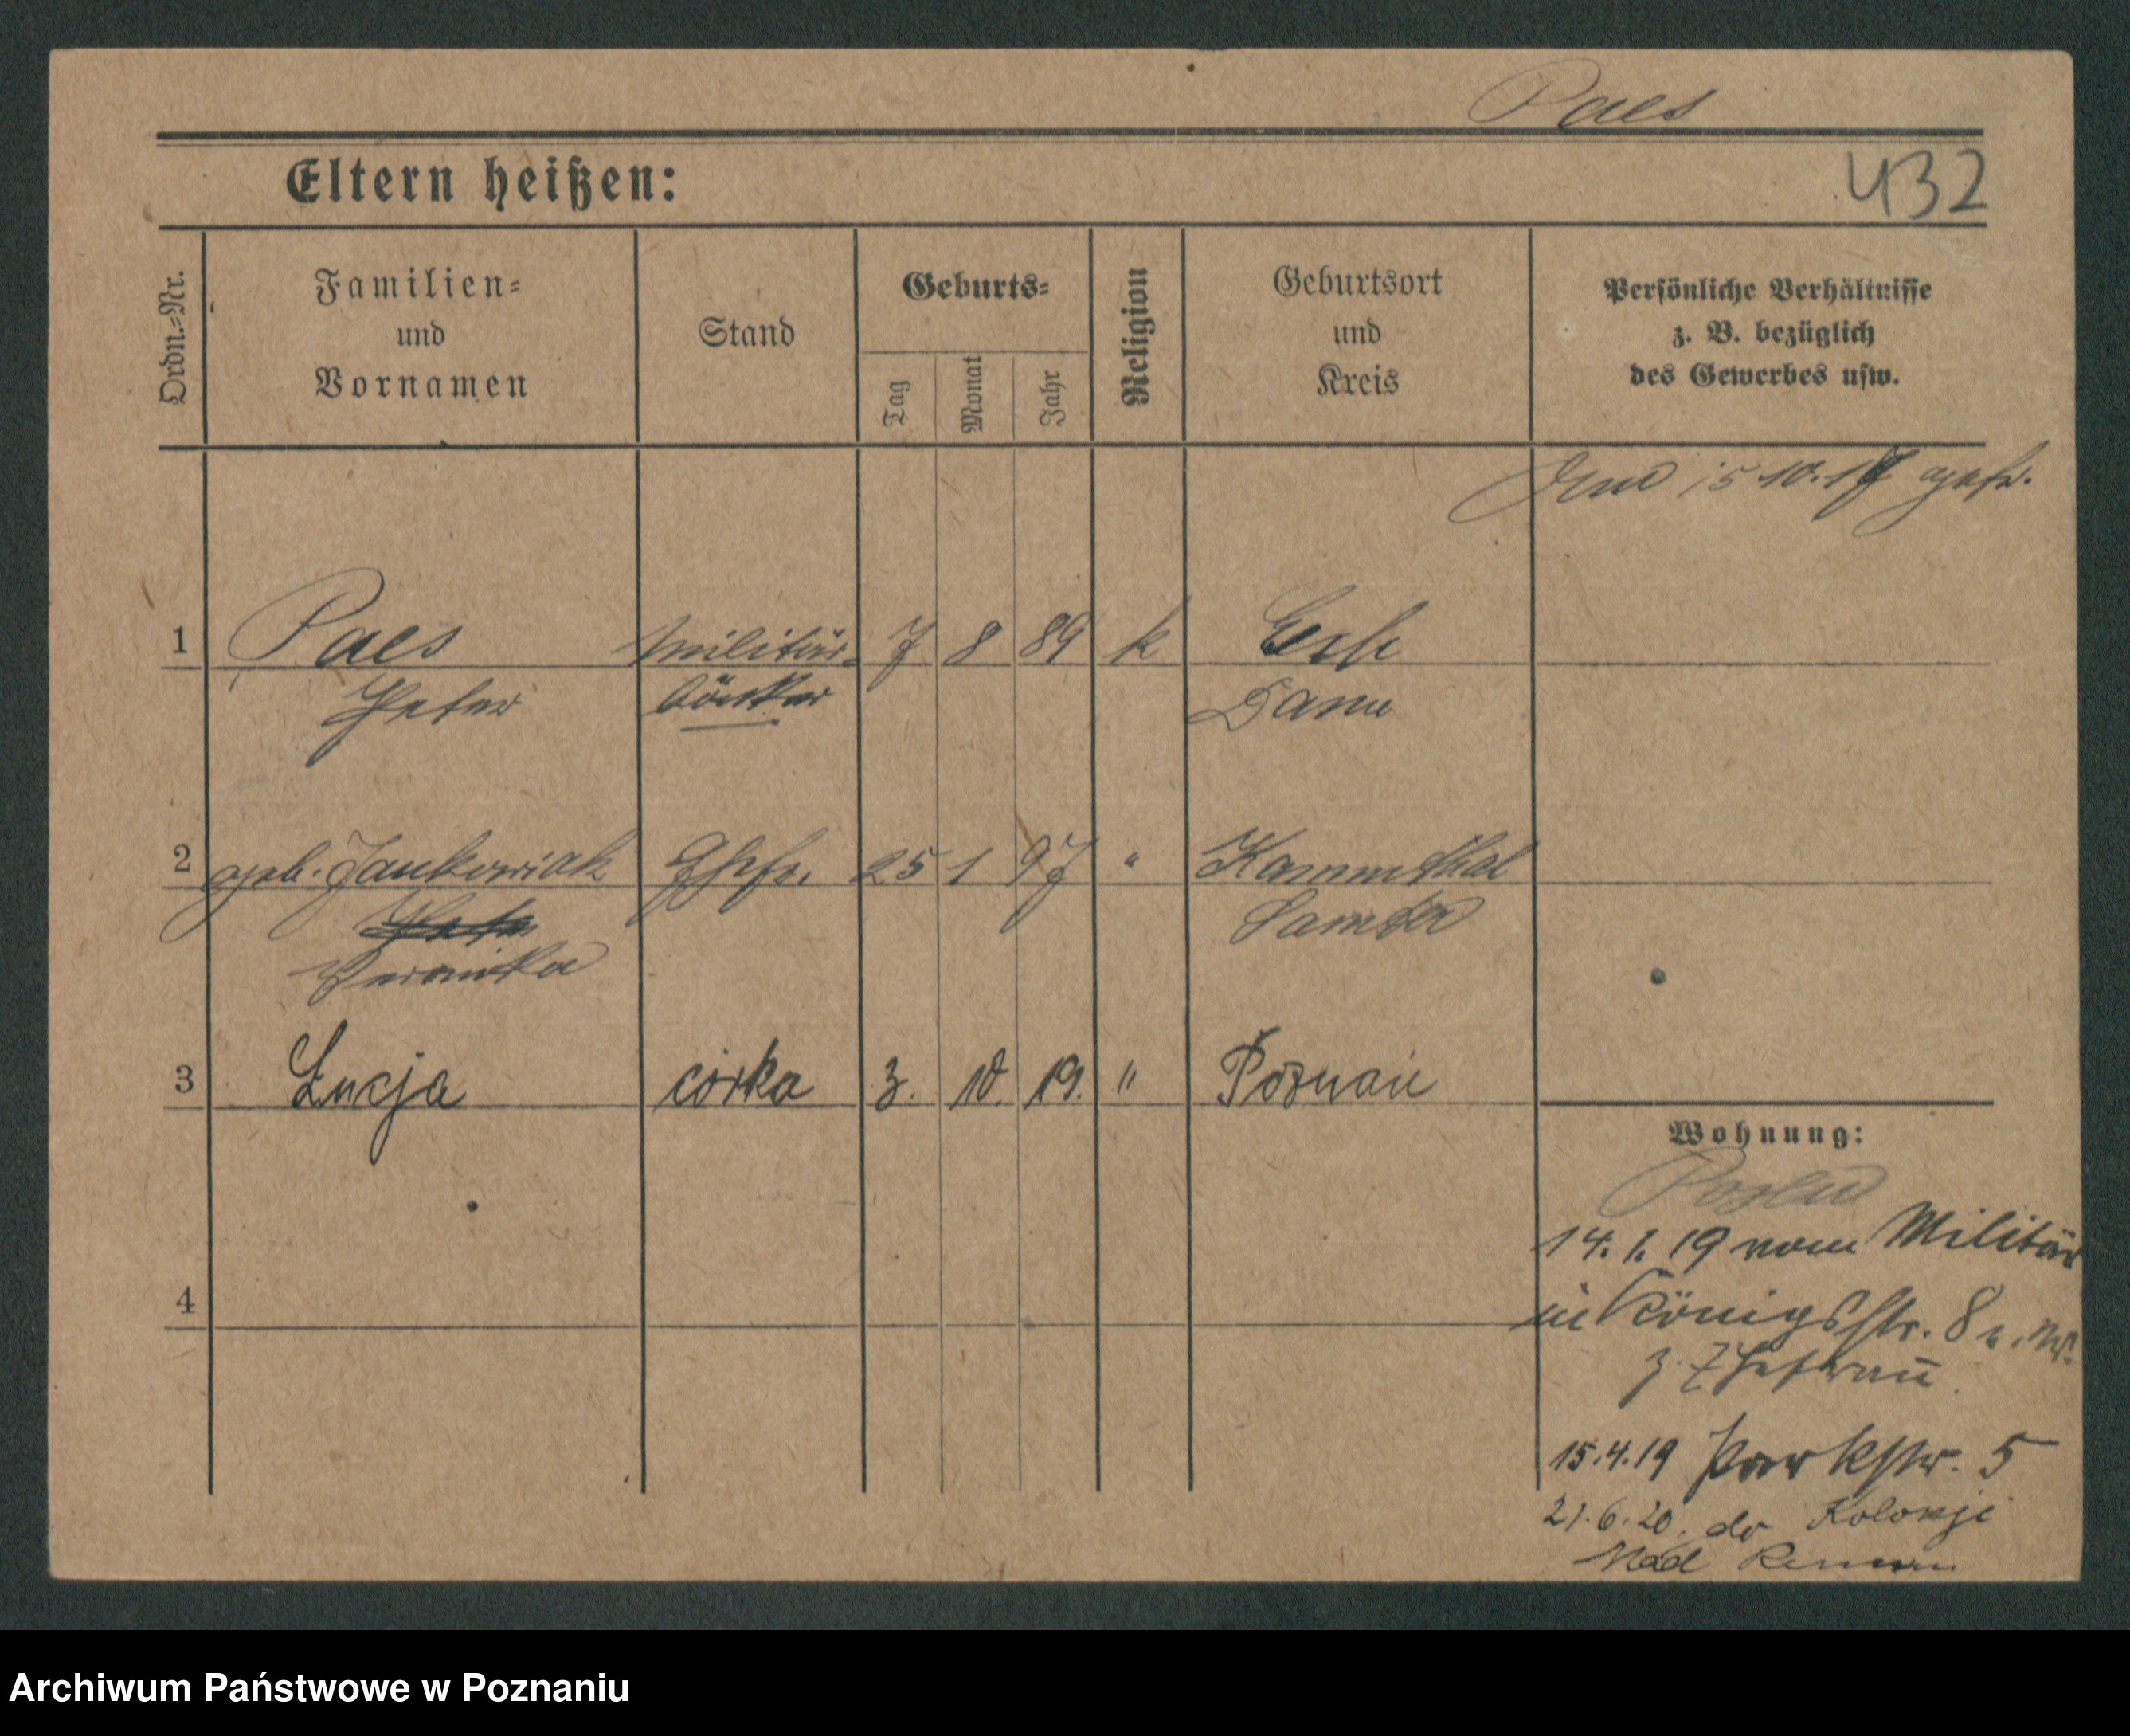 Paes
Eltern heißen:
432
Ordn.-Nr.
Familien-
und
Vornamen
Stand
Geburts-
Tag
Monat
Jahr
Religion
Geburtsort
und
Kreis
Persönliche Verhältnisse
z. B. bezüglich
des Gewerbes usw.
15 10. 17
1 Paes Militär- 7 8 89 k
Peter bäcker
2 geb. Jankowiak Ehefr. 25 1 97 " Kammthal
Samter
Veronika
3 Łucja córka 3. 10. 19. " Poznań
Wohnung:
14. 1. 19 vom Militär
in Königsstr. 8
z. Ehefrau
4
15.4.19 Parkstr. 5
21.6.20. do Kolonji
Nad
Archiwum Państwowe w Poznaniu